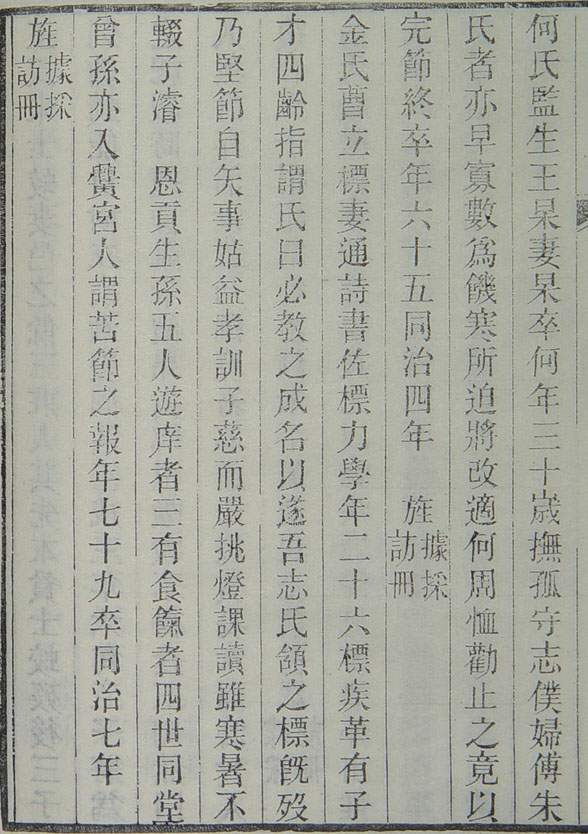 何氏監生王杲妻杲卒何年三十歲撫孤守志僕婦傅朱
氏者亦早寡數爲饑寒所迫將改適何周恤勸止之竟以
完節終卒年六十五同治四年　旌據採訪冊
金氏曹立標妻通詩書佐標力學年二十六標疾革有子
才四齡指謂氏曰必教之成名以遂吾志氏頷之標旣歿
乃堅節自矢事姑益孝訓子慈而嚴挑燈課讀雖寒暑不
輟子濬　恩貢生孫五人遊庠者三有食餼者四世同堂
曾孫亦入黌宮人謂苦節之報年七十九卒同治七年
旌據採訪冊